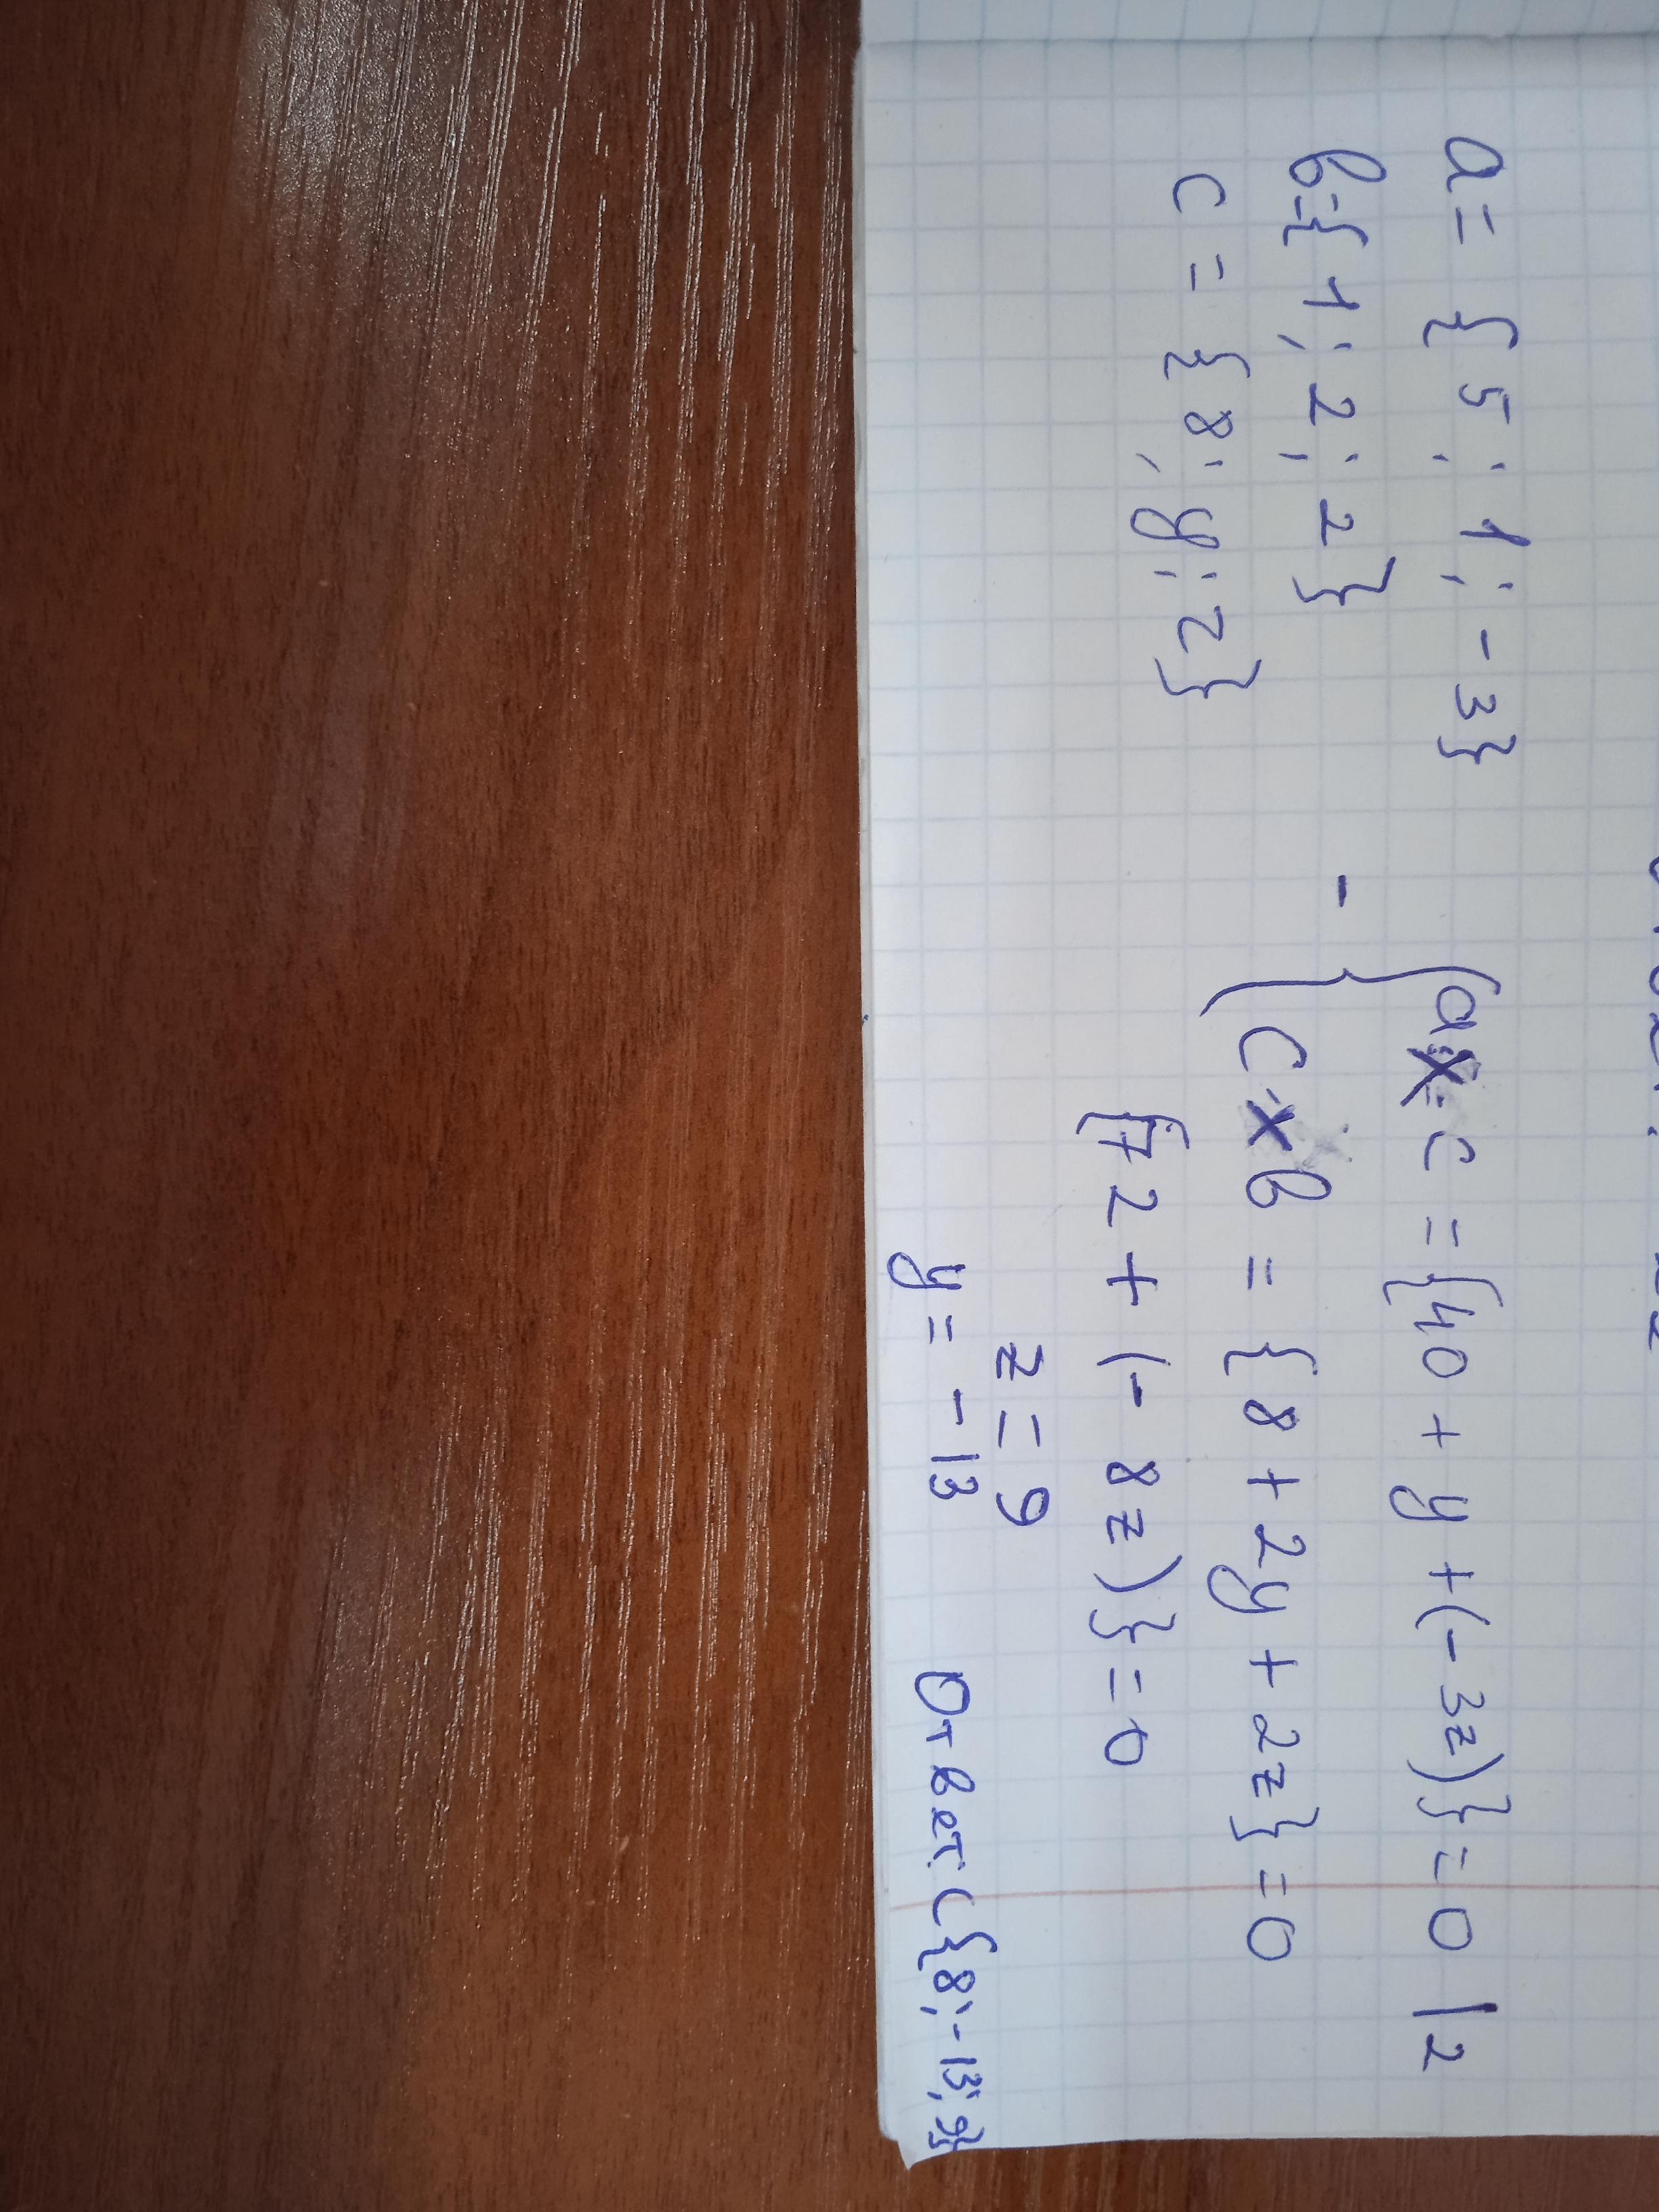 a = { 5 ; 1 ; - 3}
b = { 1 ; 2 ; 2 }
c = { 8 ; y ; z }
- { a x c = {40 + y + (- 3z)} = 0 | 2
c x b = { 8 + 2y + 2z } = 0
{72 + (- 8z)} = 0
z = 9
y = - 13
Ответ C{8; - 13; 9}